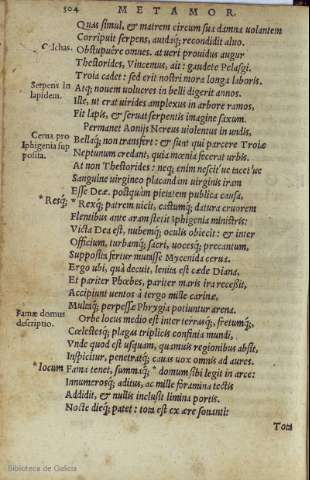 504 METAMOR.
Quas simul, & matrem circum sua damna volantem
Corripuit serpens, auidaq; recondidit aluo.
Calchas. Obstupuêre omnes. at ueri prouidus augur
Thestorides, Vincemus, ait: gaudete Pelasgi.
Troia cadet: sed erit nostri mora longa laboris.
Serpens in Atq; nouem uolucres in belli digerit annos.
lapidem. Ille, ut erat uirides amplexus in arbore ramos,
Fit lapis, & seruat serpentis imagine saxum.
Permanet Aonijs Nereus uiolentus in undis,
Cerua pro Bellaq; non transfert: & sunt qui parcere Troiæ
Iphigenia sup Neptunum credant, quia mœnia fecerat urbis.
posita. At non Thestorides: neq; enim nescit'ue tacet'ue
Sanguine uirgineo placandam uirginis iram
Esse Deæ. postquam pietatem publica causa,
* Resq; * Rexq; patrem uicit, castumq; datura cruorem
Flentibus ante aram stetit Iphigenia ministris:
Victa Dea est, nubemq; oculis obiecit: & inter
Officium, turbamq; sacri, uocesq; precantum,
Supposita fertur mutasse Mycenida cerua.
Ergo ubi, quà decuit, lenita est cæde Diana,
Et pariter Phœbes, pariter maris ira recessit,
Accipiunt uentos à tergo mille carinæ,
Multaq; perpessæ Phrygia potiuntur arena.
Famæ domus Orbe locus medio est inter terrasq;, fretumq;,
descriptio. Cœlestesq; plagas triplicis confinia mundi,
Vnde quod est usquam, quamuis regionibus absit,
Inspicitur, penetratq; cauas uox omnis ad aures.
* locum Fama tenet, summaq; * domum sibi legit in arce:
Innumerosq; aditus, ac mille foramina tectis
Addidit, & nullis inclusit limina portis.
Nocte dieq; patet: tota est ex ære sonanti:
Tota
Biblioteca de Galicia